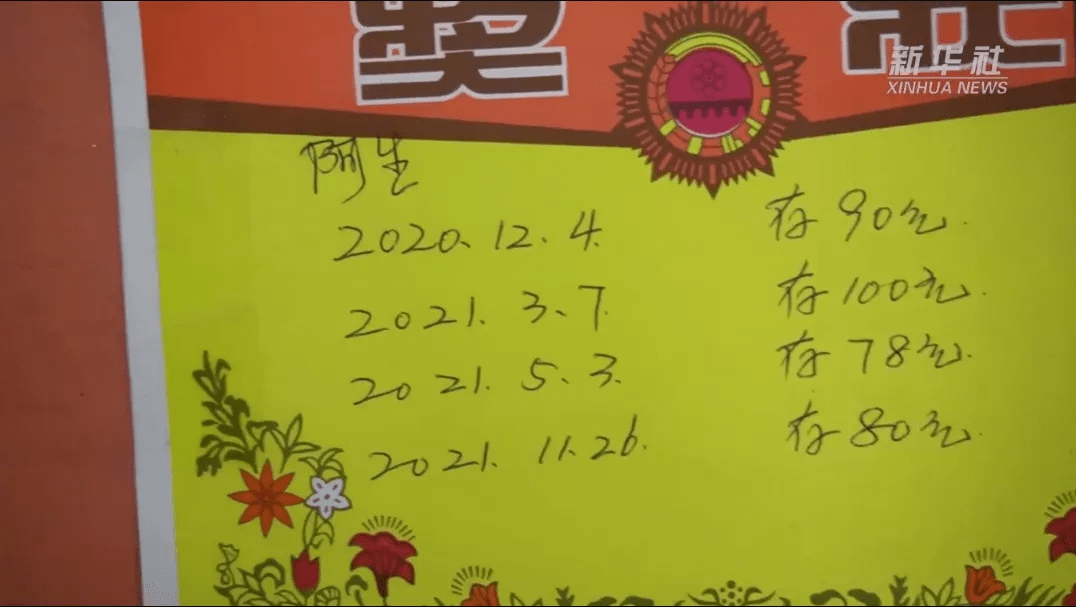 奖状
新华社
XINHUA NEWS
阿生
2020.12.4. 存90元.
2021.3.7. 存100元.
2021.5.3. 存78元.
2021.11.26. 存80元.